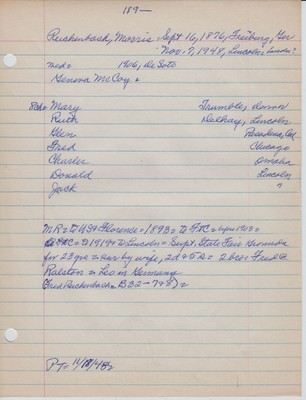 189—
Reichenbach, Morris = Sept 16, 1876, Freiburg, Ger
Nov. 7, 1948, Lincoln
med = 1906, De Soto
Geneva McCoy =
Mary Trumble,
Ruth Delhay, Lincoln
Glen Pasadena, Cal
Fred Chicago
Charles Omaha
Donald Lincoln
Jack "
MR = to USA Florence = 1893 = to FtC =
FtC = to 1919 = to Lincoln = Supt. State Fare Grounds
for 23 yrs = sur by wife, 2d & 5 s = 2 bros Fred @
Ralston = Leo in Germany
(Fred Reichenbach = B32—798) =
PT = 11/18/48